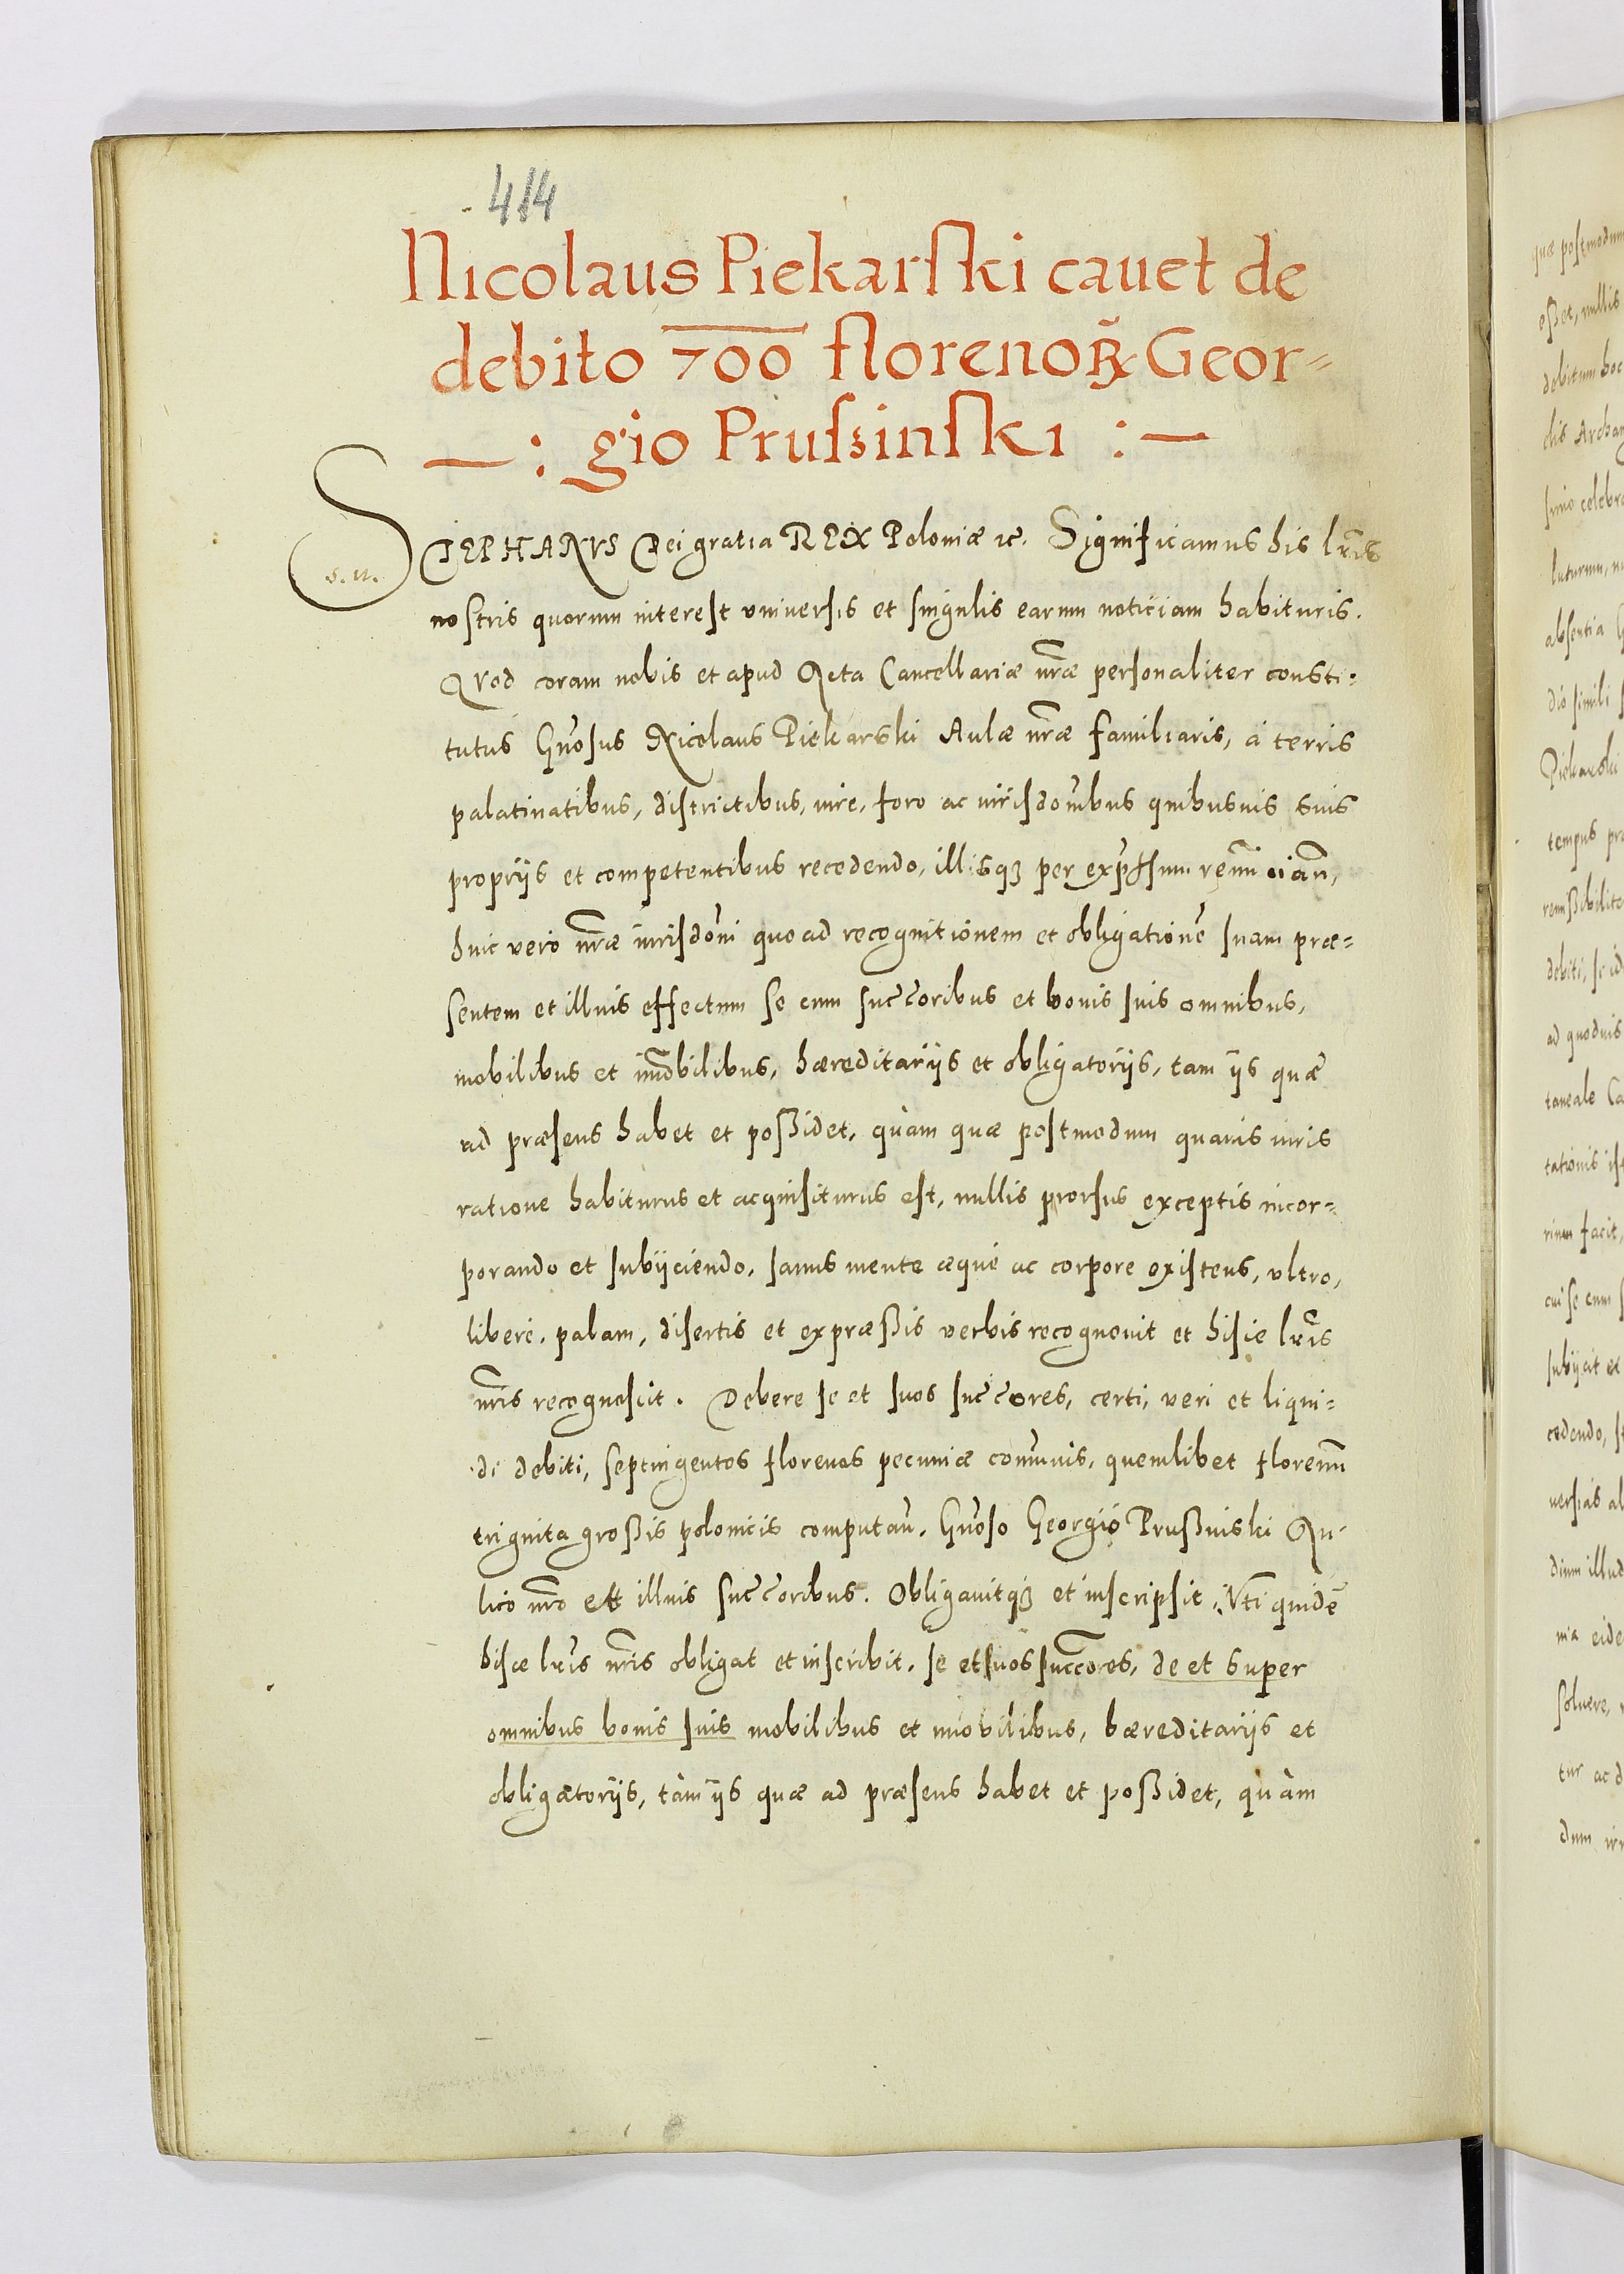 414
Nicolaus Piekarſki cauet de
debito 700 florenoꝝ Geor=
—: gio Pruſsinſki :—
STEPHANVS Dei gratia REX Poloniæ ꝛc. Significamus his lr̃is
s. n.
noſtris quorum intereſt vniuerſis et ſingulis earum noticiam habituris.
Qvod coram nobis et apud Acta Cancellariæ nr̃æ perſonaliter consti=
tutus Gñoſus Nicolaus Piekarski Aulæ nr̃æ familiaris, á terris
palatinatibus, diſtrictibus, iure, foro ac iuriſdoñibus quibusuis suis
proprijs et competentibus recedendo, illisqꝫ per exp̃ſſum renũ oiañ,
huic vero nr̃æ iuriſdoñi quo ad recognitionem et obligationẽ ſuam præ=
ſentem et illius effectum ſe cum ſuc̃coribus et bonis ſuis omnibus,
mobilibus et im̃obilibus, hæreditarijs et obligatorijs, tam ijs quæ
ad præſens habet et poßidet, quàm quæ poſtmodum quauis iuris
ratione habiturus et acquiſiturus eſt, nullis prorſus exceptis incor=
porando et ſubijciendo, ſanus mente æque ac corpore exiſtens, vltro,
liberé, palam, diſertis et expræßis verbis recognouit et hiſce lr̃is
nr̃is recognoſcit. Debere ſe et ſuos ſuc̃cores, certi, veri et liqui=
di debiti, ſeptingentos florenos pecuniæ com̃unis, quemlibet florenũ
triginta großis polonicis computañ, Gñoſo Georgio Prußinski Au=
lico nr̃o et illius ſuc̃coribus. Obligauitqꝫ et inſcripſit, Vti quidẽ
hiſce lr̃is nr̃is obligat et inſcribit, ſe et ſuos ſuc̃cores, de et super
omnibus bonis ſuis mobilibus et im̃obilibus, hæreditarijs et
obligatorijs, tàm ijs quæ ad præſens habet et poßidet, quàm
quæ poſtmodum
eßet, nullis
debitum hoc
ſimo celebr
abſentia
dio ſimili
Piekarski
tempus
remißibilite
debiti,
ad quoduis
taneale
tationis
rium facit,
cui ſe cum
ſubijcit et
cedendo,
uerſias
dium illud
nia eide
ſoluere,
tur ac
dum